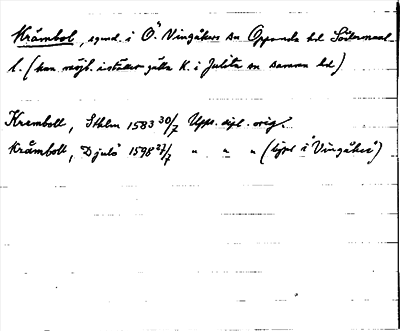 Kråmbol, egend. i Ö. Vingåkers sn Oppunda hd Södermanl.
l. (kan möjl. istället gälla K. i Julita sn samma hd)
Krembolt, Sthlm 1583 30/7 Upps. dipl. orig.
Kråmbolt, Djulö 1598 27/7 " " " (tjänl i "Vingåker")